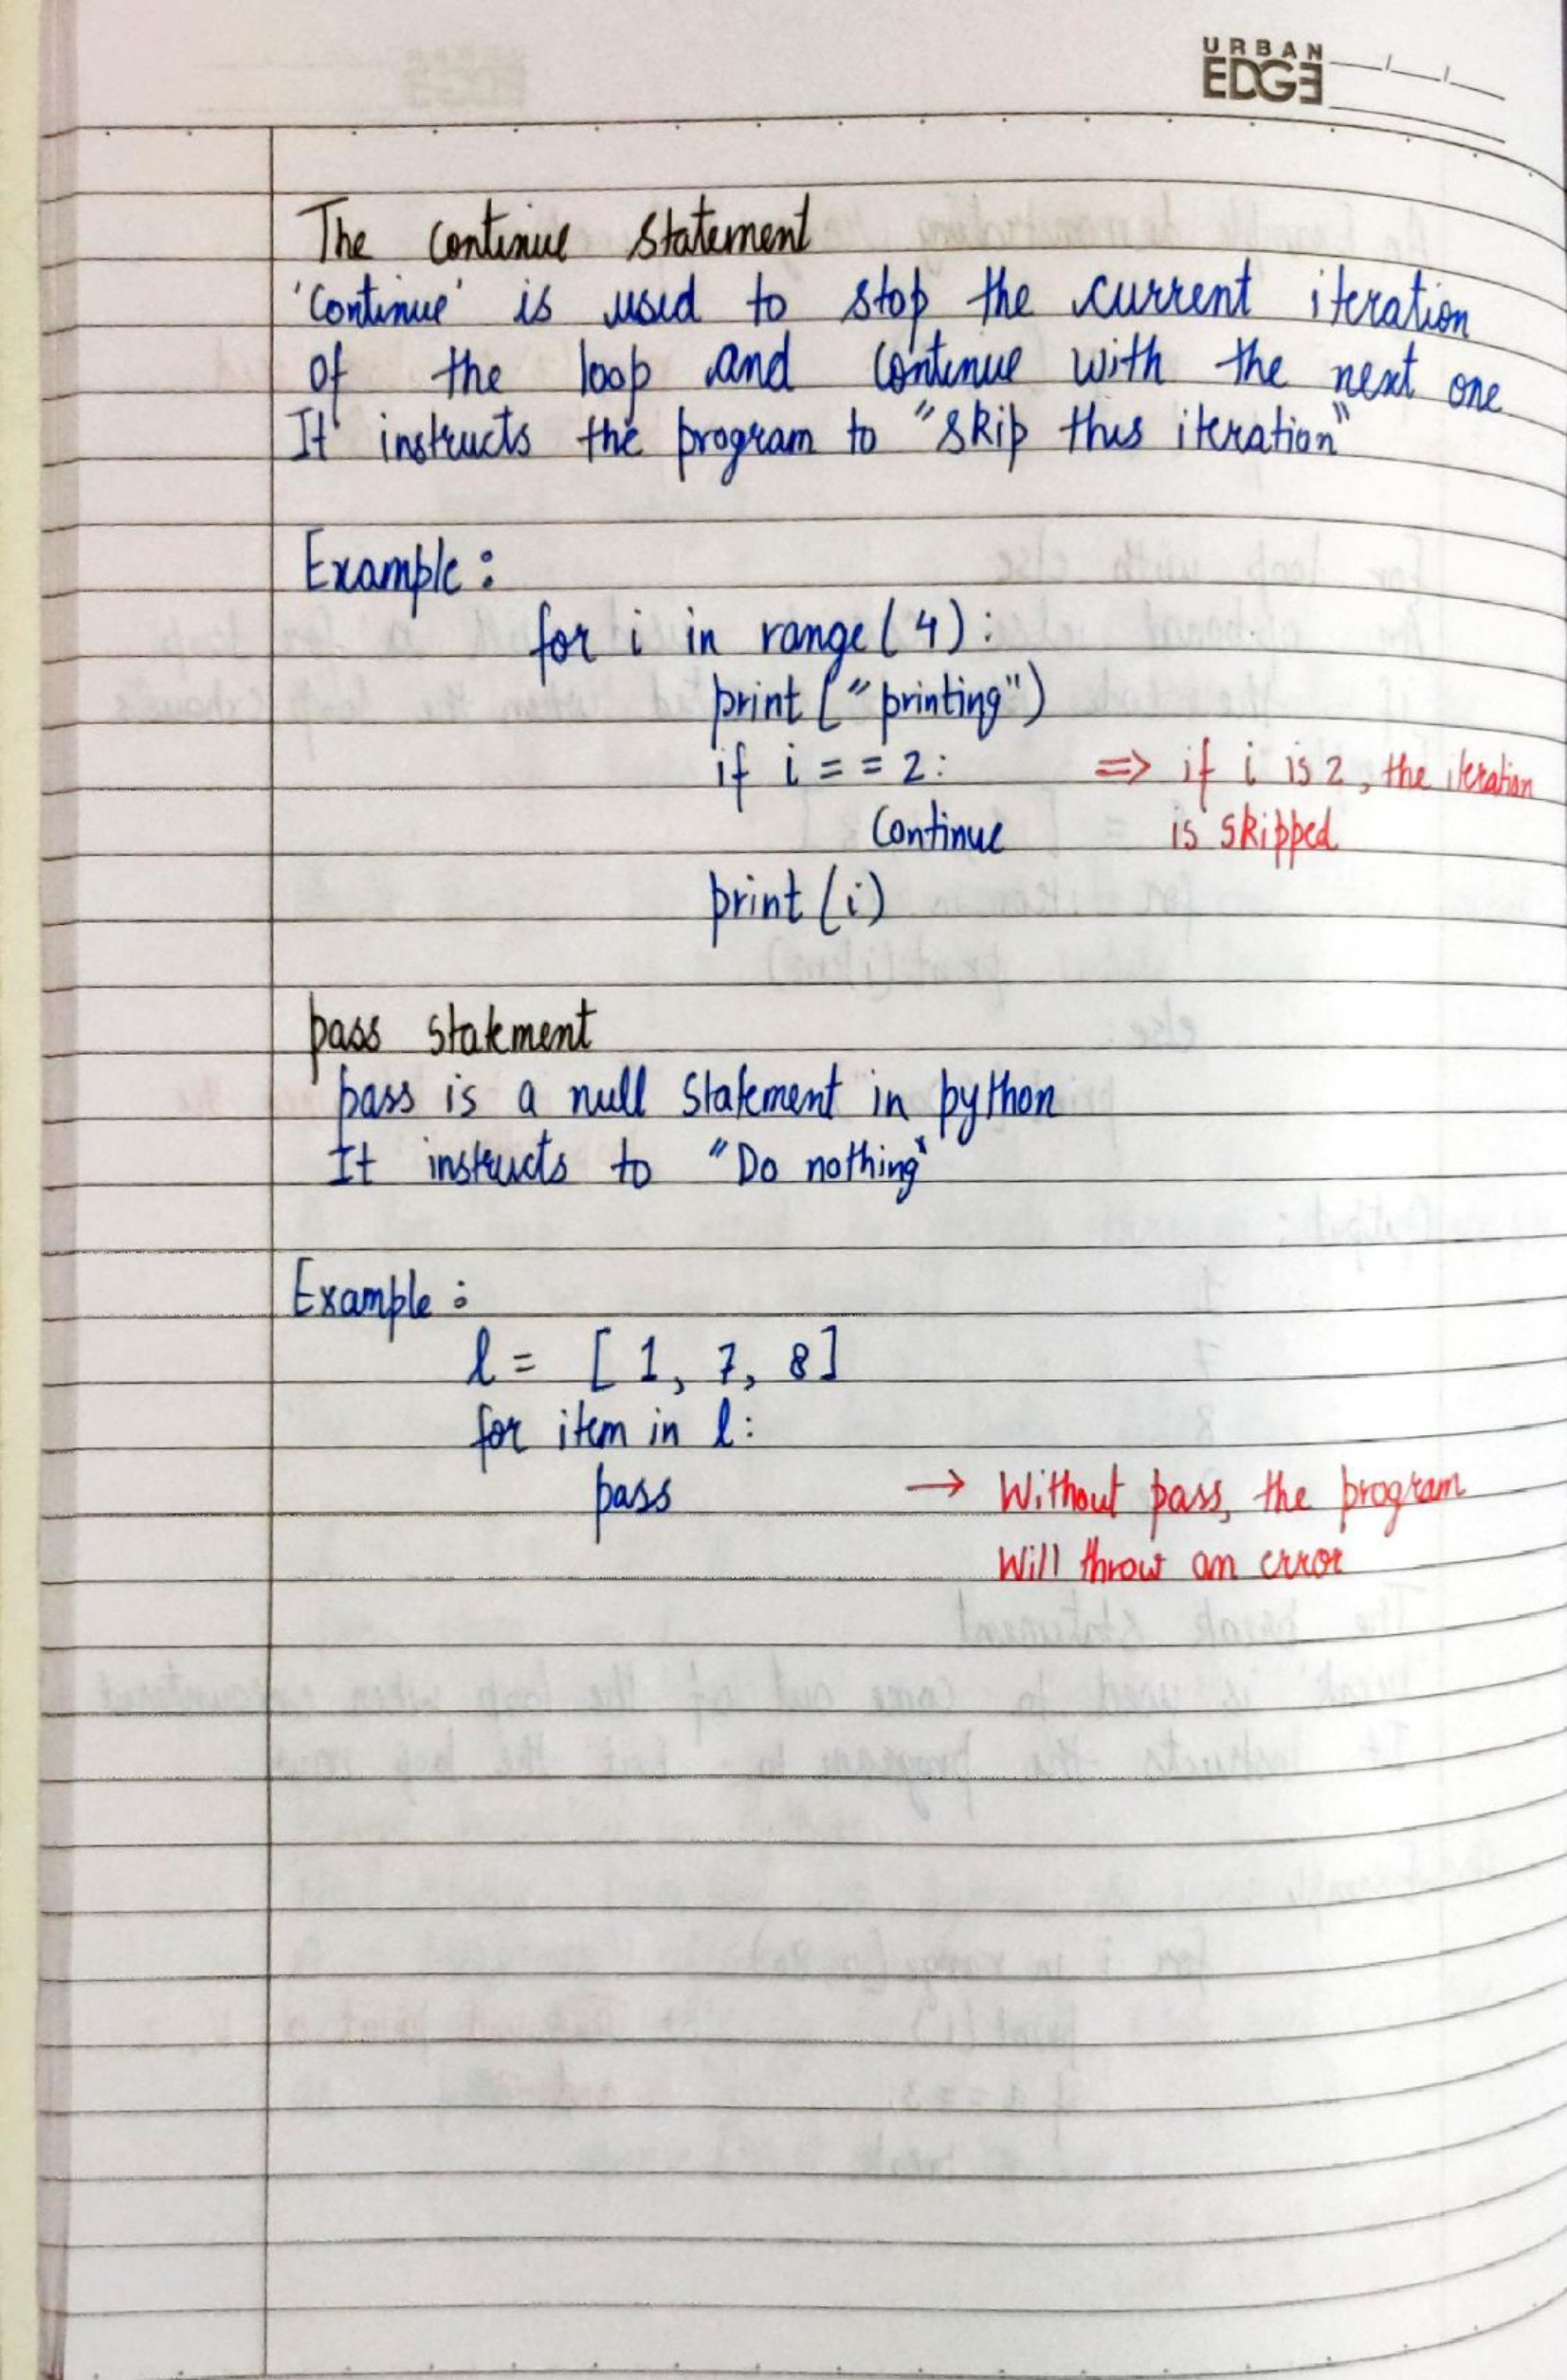 URBAN
EDGE
The Continue Statement
'Continue' is used to stop the current iteration
of the loop and continue with the next one
It instructs the program to "Skip this iteration"
Example:
for i in range(4):
print("printing")
if i == 2: => if i is 2, the iteration
Continue is skipped
print(i)
pass statement
pass is a null statement in python
It instructs to "Do nothing"
Example:
l = [1, 7, 8]
for item in l:
pass → Without pass, the program
Will throw an error